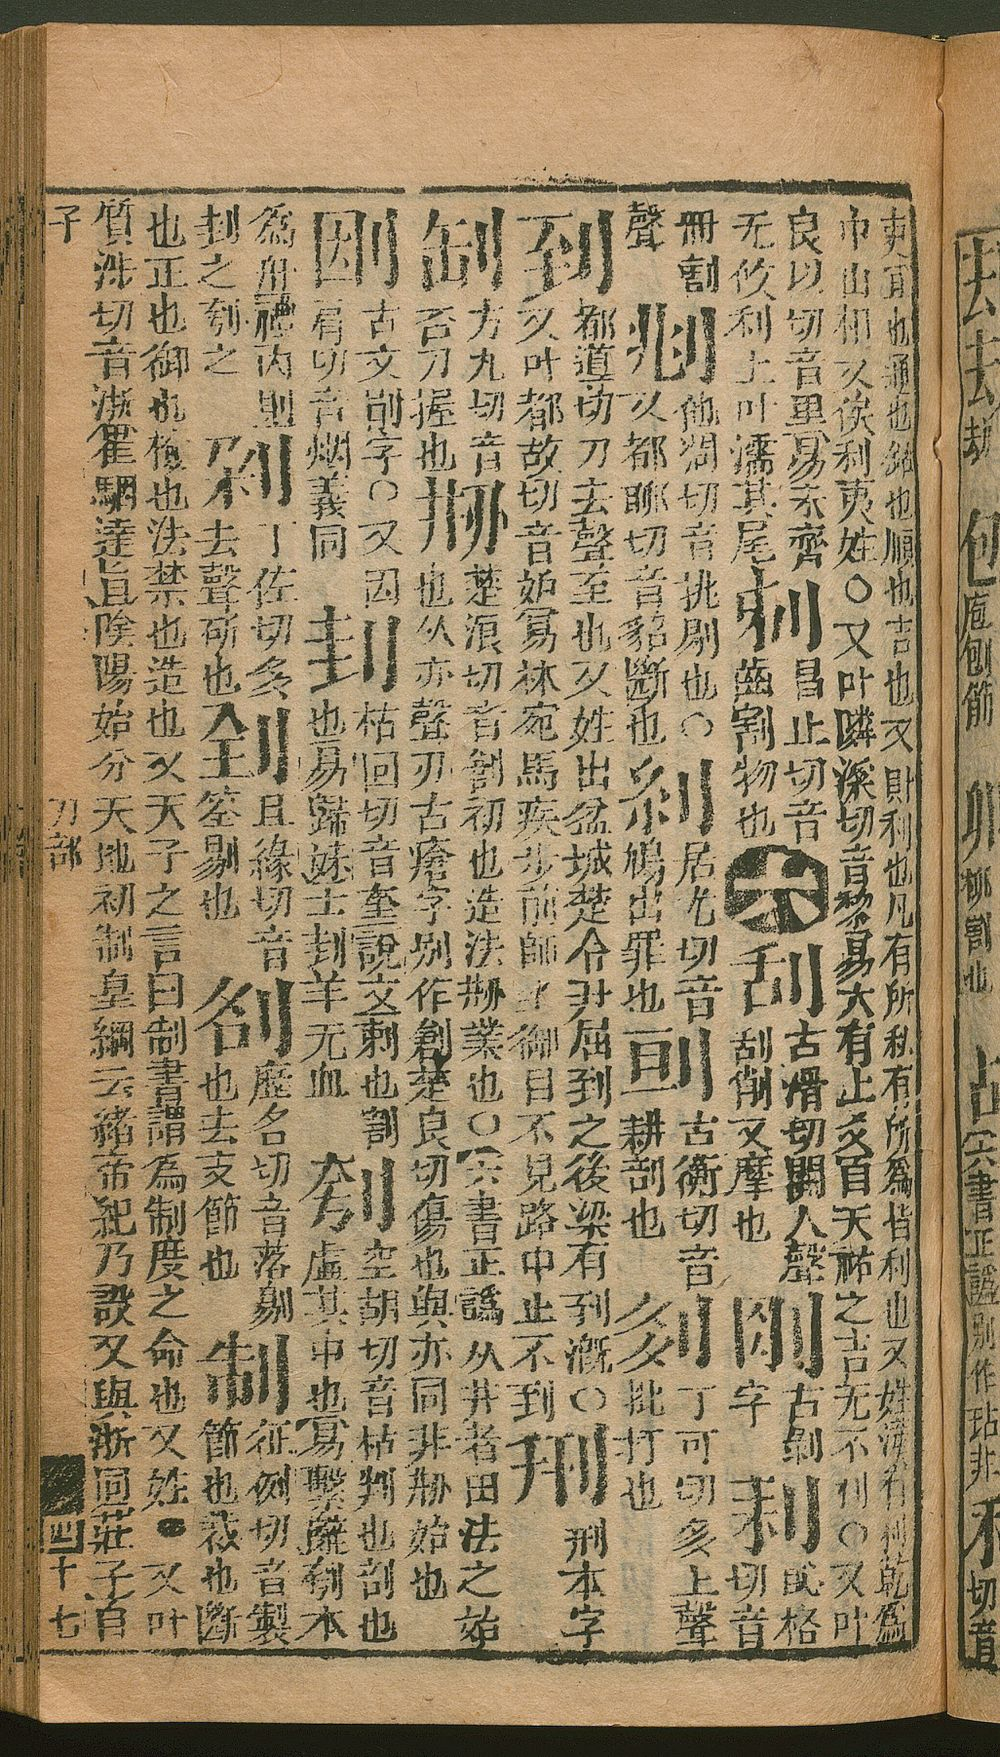 夷宜也通也銛也順也吉也又財利也凡有所私有所爲皆利也又姓漢有利乾爲
中山相又俟利夷姓○又叶隣溪切音黎易大有上爻自天祐之吉无不利○又叶
良以切音里易未齊
无攸利上叶濡其尾
刾
昌止切音
齒割物也
六
刮
古滑切關入聲
刮削又摩也
字
格
切音
冊割
聲
㓮
他凋切音挑剔也○
又都聊切音貂斷也
居尤切音
鳩出罪也
古衡切音
耕刮也
刴
丁可切多上聲
批打也
到
都道切刀去聲至也又姓出盆城楚令尹屈到之後梁有到漑○
又叶都故切音妬易林宛馬疾步前師坐御目不見路中止不到
㓝
刑本字
方九切音
否刀握也
剙
楚浪切音創初也造法剏業也○六書正譌从井者田法之始
也从亦聲刃古瘡字別作創楚良切傷也與亦同非剏始也
古文剮字○又因
肩切音烟義同
刲
枯回切音奎說文刺也割
也易歸妹士刲羊无血
刳
空胡切音枯判也剖也
虛其中也易繫辭刳木
爲舟禮內則
刲之刳之
丁佐切多
去聲斫也
且緣切音
筌剔也
㓢
歷各切音落剔
也去支節也
制
征例切音製
節也裁也斷
也正也御也檢也法禁也造也又天子之言曰制書謂爲制度之命也又姓●又叶
質涉切音浙崔駰達旨陰陽始分天地初制皇綱云緒帝紀乃設又與浙同莊子自
子 刀部 四十七